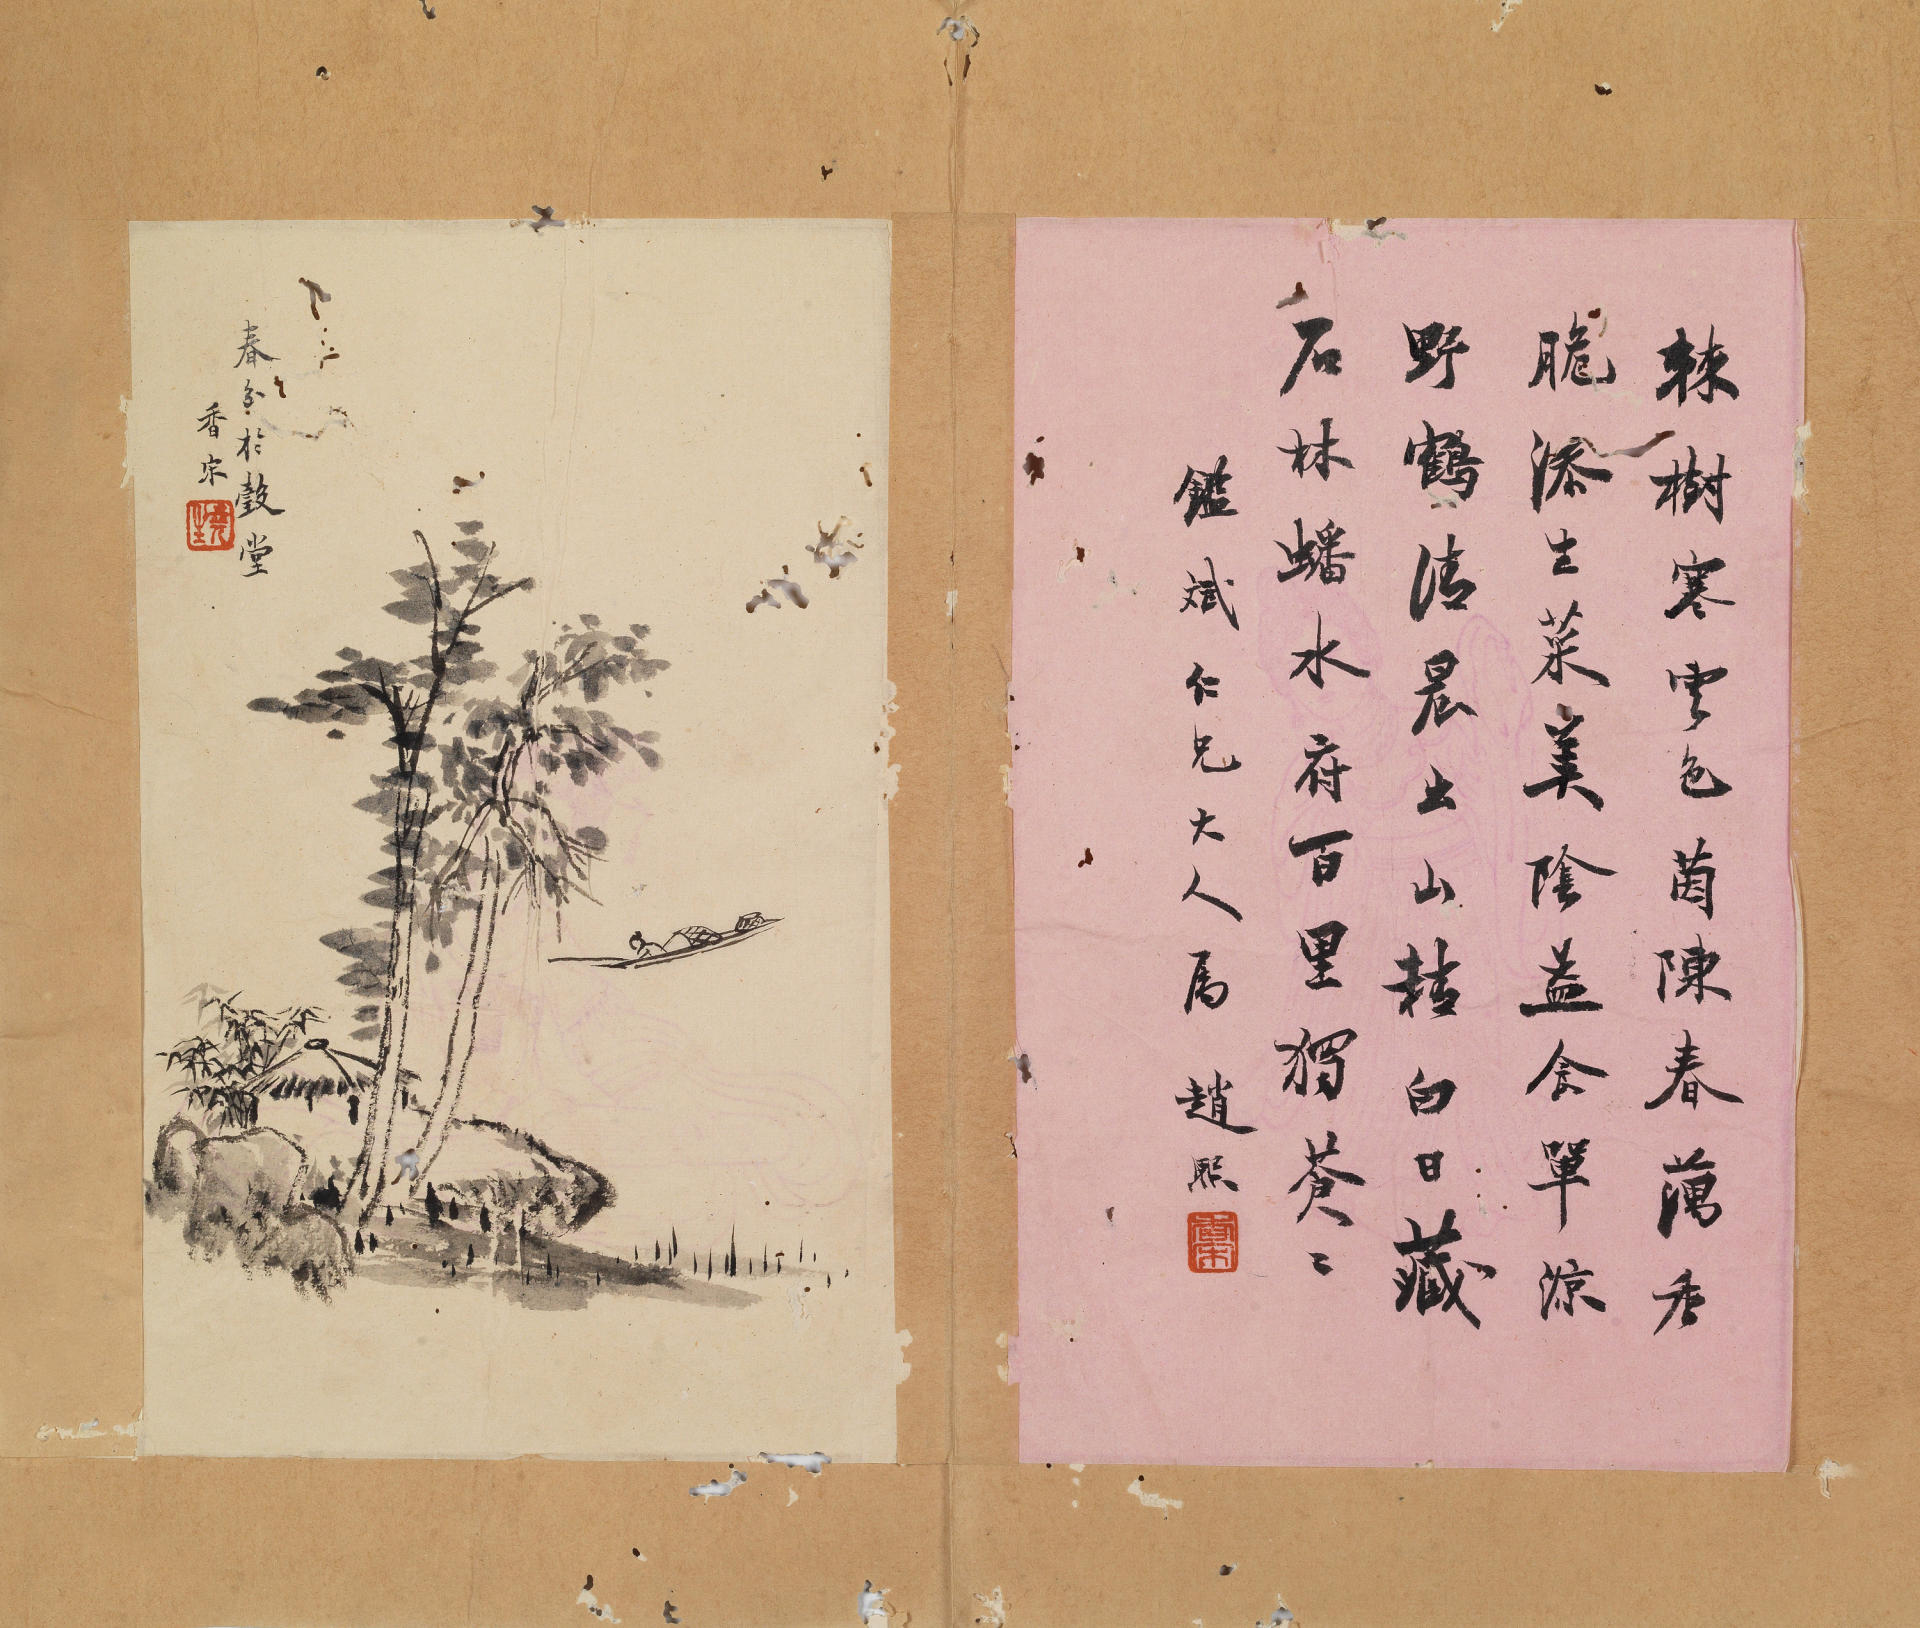 棘樹寒雲色茵陳春藕香
脆添生菜美陰益食單涼
野鶴清晨出山精白日藏
石林蟠水府百里獨蒼〻
鑑斌仁兄大人属 趙熙
香宋
春分於堂
香宋
堯生